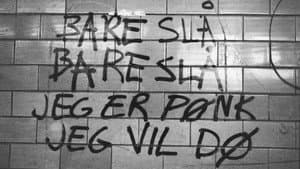 BARE SLÅ
BARE SLÅ
JEG ER PØNK
JEG VIL DØ